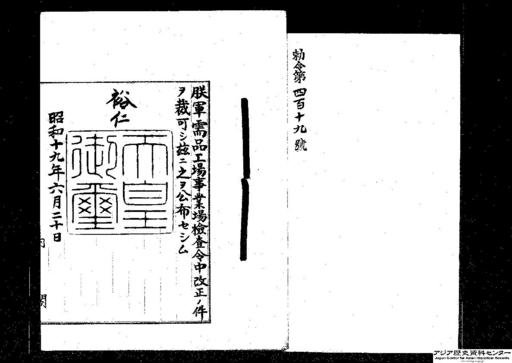 勅令第四百十九號
朕軍需品工場事業場檢査令中改正ノ件
ヲ裁可シ茲ニ之ヲ公布セシム
裕仁
天皇
御璽
昭和十九年六月二十日
内閣
アジア歴史資料センター
Japan Center for Asian Historical Records